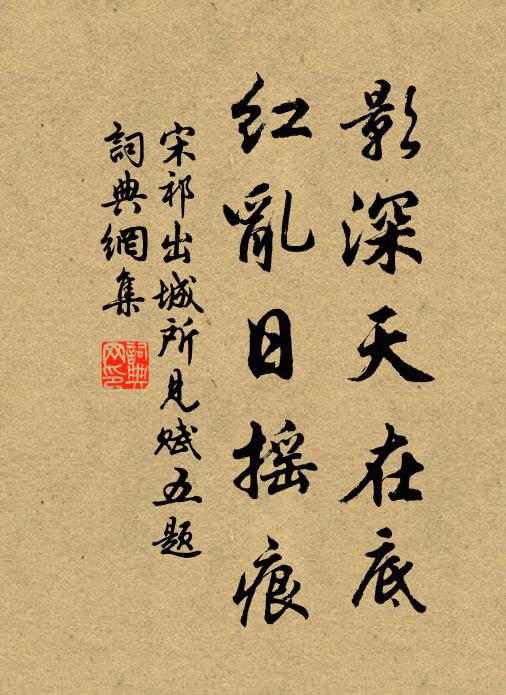 影深天在底
紅亂日摇痕
宋祁出城所見赋五题
詞典網集
詞典网印